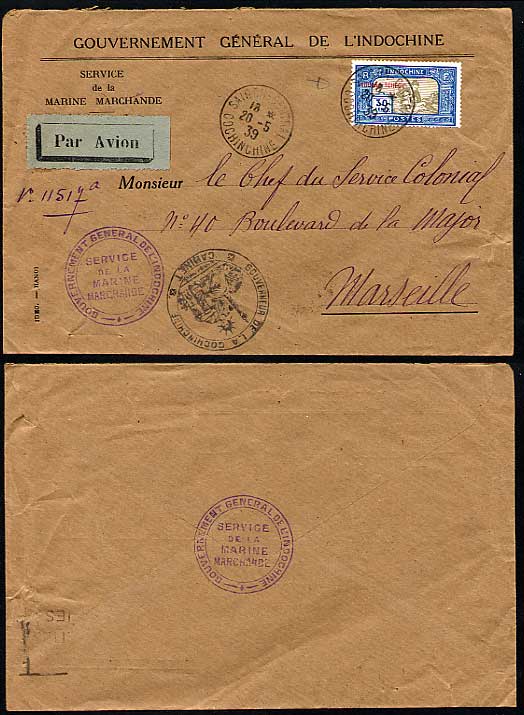 GOUVERNEMENT GÉNÉRAL DE L'INDOCHINE
SERVICE
de la
MARINE MARCHANDE
Par Avion
18
20-5
39
COCHINCHINE
INDOCHINE
30
POSTES
Nº 11517 a
Monsieur le Chef du Service Colonial
Nº 40 Boulevard de la Major
Marseille
GOUVERNEMENT GENERAL DE L'INDOCHINE
SERVICE
DE LA
MARINE
MARCHANDE
GOUVERNEUR DE LA COCHINCHINE
CABINET
IDEO. — HANOI
GOUVERNEMENT GENERAL DE L'INDOCHINE
SERVICE
DE LA
MARINE
MARCHANDE